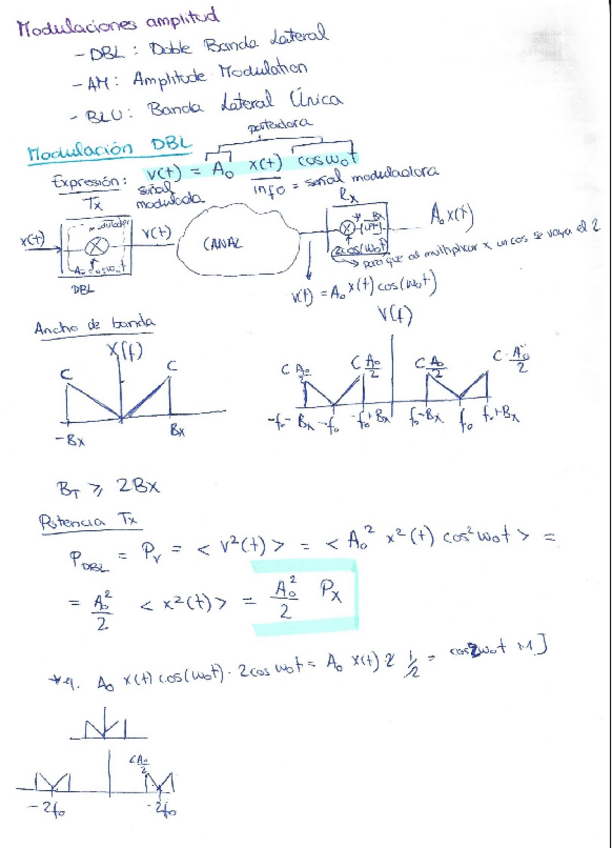 Modulaciones amplitud
- DBL: Doble Banda Lateral
- AM: Amplitude Modulation
- BLU: Banda Lateral Única
Modulación DBL
portadora
Expresión: v(t) = A₀ x(t) cosω₀t
señal modulada
info = señal moduladora
Tx
Rx
modulador
x(t)
v(t)
CANAL
DBL
2cos(ω₀t)
A₀x(t)
para que al multiplicar x un cos se vaya el 2
v(t) = A₀x(t)cos(ω₀t)
Ancho de banda
X(f)
V(f)
C
C
-Bx
Bx
C A₀/2
C A₀/2
C A₀/2
C · A₀/2
-f₀-Bx
-f₀
-f₀+Bx
f₀-Bx
f₀
f₀+Bx
B_T ⩾ 2Bx
Potencia Tx
P_DBL = P_V = < V²(t) > = < A₀² x²(t) cos²ω₀t > =
= A₀²/2 < x²(t) > = A₀²/2 Px
A₀ x(t) cos(ω₀t) · 2cosω₀t = A₀ x(t) 2 1/2
CA₀/2
-2f₀
-2f₀